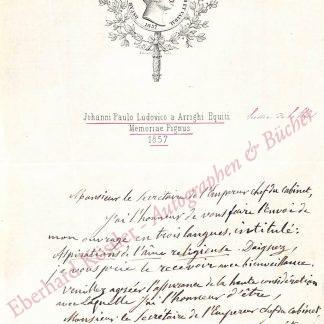 1857
Johanni Paulo Ludovico a Arrighi Equiti
Memoriae Pignus
1857
Monsieur le Secrétaire de l'Empereur chef du cabinet,
j'ai l'honneur de vous faire l'envoi de
mon ouvrage en trois langues, intitulé:
Aspirations de l'âme religieuse. Daignez,
je vous prie le recevoir avec bienveillance.
Veuillez agréer l'assurance de la haute considération
avec laquelle j'ai l'honneur d'être,
Monsieur le Secrétaire de l'Empereur chef du cabinet,
Eberhard Köstler - Autographen & Bücher